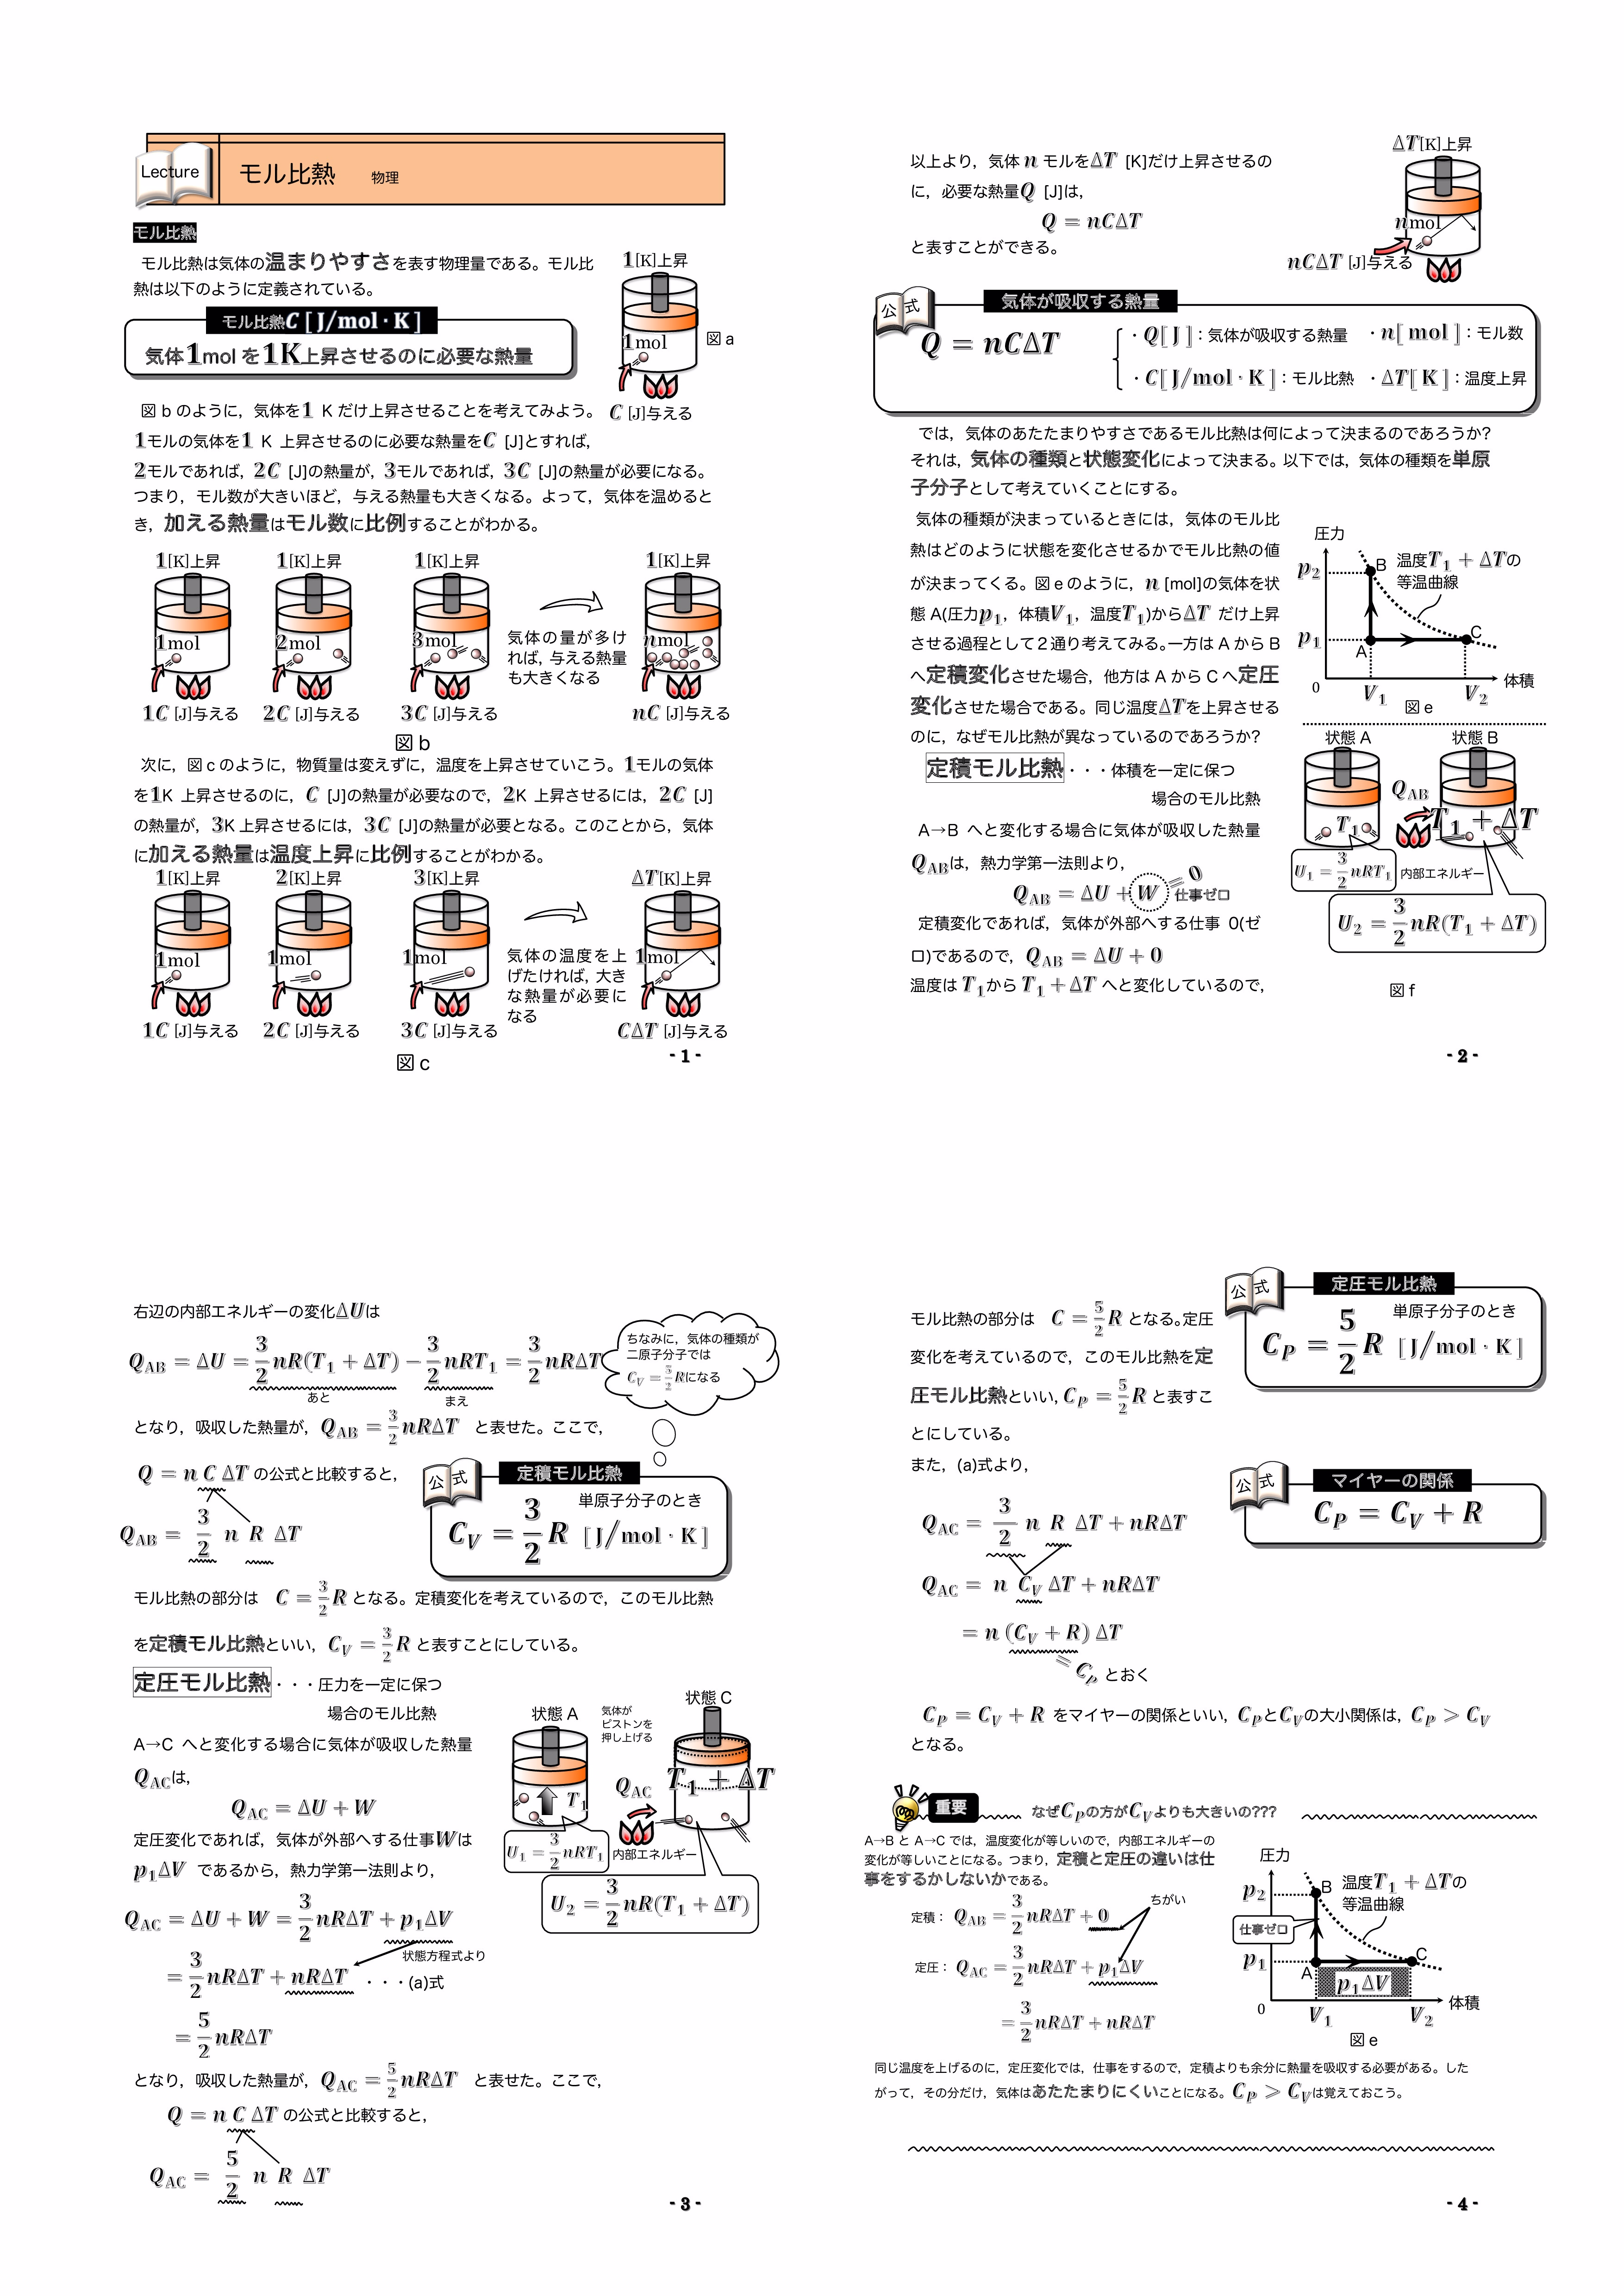 Lecture
モル比熱 物理
モル比熱
モル比熱は気体の温まりやすさを表す物理量である。モル比
熱は以下のように定義されている。
モル比熱C [ J/mol・K ]
気体1mol を1K上昇させるのに必要な熱量
1[K]上昇
1mol
図 a
C [J]与える
図 b のように，気体を1 K だけ上昇させることを考えてみよう。
1モルの気体を1 K 上昇させるのに必要な熱量をC [J]とすれば，
2モルであれば，2C [J]の熱量が，3モルであれば，3C [J]の熱量が必要になる。
つまり，モル数が大きいほど，与える熱量も大きくなる。よって，気体を温めると
き，加える熱量はモル数に比例することがわかる。
1[K]上昇 1[K]上昇 1[K]上昇 1[K]上昇
1mol 2mol 3mol nmol
気体の量が多け
れば，与える熱量
も大きくなる
1C [J]与える 2C [J]与える 3C [J]与える nC [J]与える
図 b
次に，図 c のように，物質量は変えずに，温度を上昇させていこう。1モルの気体
を1K 上昇させるのに，C [J]の熱量が必要なので，2K 上昇させるには，2C [J]
の熱量が，3K 上昇させるには，3C [J]の熱量が必要となる。このことから，気体
に加える熱量は温度上昇に比例することがわかる。
1[K]上昇 2[K]上昇 3[K]上昇 ΔT[K]上昇
1mol 1mol 1mol 1mol
気体の温度を上
げたければ，大き
な熱量が必要に
なる
1C [J]与える 2C [J]与える 3C [J]与える CΔT [J]与える
図 c
- 1 -
以上より，気体 n モルをΔT [K]だけ上昇させるの
に，必要な熱量Q [J]は，
Q = nCΔT
と表すことができる。
ΔT[K]上昇
nmol
nCΔT [J]与える
公式
気体が吸収する熱量
Q = nCΔT
・Q[ J ]：気体が吸収する熱量 ・n[ mol ]：モル数
・C[ J/mol・K ]：モル比熱 ・ΔT[ K ]：温度上昇
では，気体のあたたまりやすさであるモル比熱は何によって決まるのであろうか?
それは，気体の種類と状態変化によって決まる。以下では，気体の種類を単原
子分子として考えていくことにする。
気体の種類が決まっているときには，気体のモル比
熱はどのように状態を変化させるかでモル比熱の値
が決まってくる。図 e のように，n [mol]の気体を状
態 A(圧力p₁，体積V₁，温度T₁)からΔT だけ上昇
させる過程として２通り考えてみる。一方は A から B
へ定積変化させた場合，他方は A から C へ定圧
変化させた場合である。同じ温度ΔTを上昇させる
のに，なぜモル比熱が異なっているのであろうか?
圧力
p₂
B
温度T₁ + ΔTの
等温曲線
p₁
A
C
0
V₁
V₂
体積
図 e
定積モル比熱・・・体積を一定に保つ
場合のモル比熱
A→B へと変化する場合に気体が吸収した熱量
Q_ABは，熱力学第一法則より，
Q_AB = ΔU + W = 0 仕事ゼロ
定積変化であれば，気体が外部へする仕事 0(ゼ
ロ)であるので，Q_AB = ΔU + 0
温度は T₁から T₁ + ΔT へと変化しているので，
状態 A 状態 B
Q_AB
T₁
T₁ + ΔT
U₁ = 3/2 nRT₁
内部エネルギー
U₂ = 3/2 nR(T₁ + ΔT)
図 f
- 2 -
右辺の内部エネルギーの変化ΔUは
Q_AB = ΔU = 3/2 nR(T₁ + ΔT) − 3/2 nRT₁ = 3/2 nRΔT
あと まえ
ちなみに，気体の種類が
二原子分子では
C_V = 5/2 Rになる
となり，吸収した熱量が，Q_AB = 3/2 nRΔT と表せた。ここで，
Q = n C ΔT の公式と比較すると，
Q_AB = 3/2 n R ΔT
公式
定積モル比熱
単原子分子のとき
C_V = 3/2 R [ J/mol・K ]
モル比熱の部分は C = 3/2 R となる。定積変化を考えているので，このモル比熱
を定積モル比熱といい，C_V = 3/2 R と表すことにしている。
定圧モル比熱・・・圧力を一定に保つ
場合のモル比熱
A→C へと変化する場合に気体が吸収した熱量
Q_ACは，
Q_AC = ΔU + W
定圧変化であれば，気体が外部へする仕事Wは
p₁ΔV であるから，熱力学第一法則より，
Q_AC = ΔU + W = 3/2 nRΔT + p₁ΔV
状態方程式より
= 3/2 nRΔT + nRΔT ・・・(a)式
= 5/2 nRΔT
状態 A
気体が
ピストンを
押し上げる
状態 C
Q_AC
T₁
T₁ + ΔT
U₁ = 3/2 nRT₁
内部エネルギー
U₂ = 3/2 nR(T₁ + ΔT)
となり，吸収した熱量が，Q_AC = 5/2 nRΔT と表せた。ここで，
Q = n C ΔT の公式と比較すると，
Q_AC = 5/2 n R ΔT
- 3 -
モル比熱の部分は C = 5/2 R となる。定圧
変化を考えているので，このモル比熱を定
圧モル比熱といい，C_P = 5/2 R と表すこ
とにしている。
また，(a)式より，
公式
定圧モル比熱
単原子分子のとき
C_P = 5/2 R [ J/mol・K ]
公式
マイヤーの関係
C_P = C_V + R
Q_AC = 3/2 n R ΔT + nRΔT
Q_AC = n C_V ΔT + nRΔT
= n (C_V + R) ΔT
= C_P とおく
C_P = C_V + R をマイヤーの関係といい，C_PとC_Vの大小関係は，C_P > C_V
となる。
重要 なぜC_Pの方がC_Vよりも大きいの???
A→B と A→C では，温度変化が等しいので，内部エネルギーの
変化が等しいことになる。つまり，定積と定圧の違いは仕
事をするかしないかである。
ちがい
定積： Q_AB = 3/2 nRΔT + 0
定圧： Q_AC = 3/2 nRΔT + p₁ΔV
= 3/2 nRΔT + nRΔT
圧力
p₂
B
温度T₁ + ΔTの
等温曲線
仕事ゼロ
p₁
A
C
p₁ΔV
0
V₁
V₂
体積
図 e
同じ温度を上げるのに，定圧変化では，仕事をするので，定積よりも余分に熱量を吸収する必要がある。した
がって，その分だけ，気体はあたたまりにくいことになる。C_P > C_Vは覚えておこう。
- 4 -